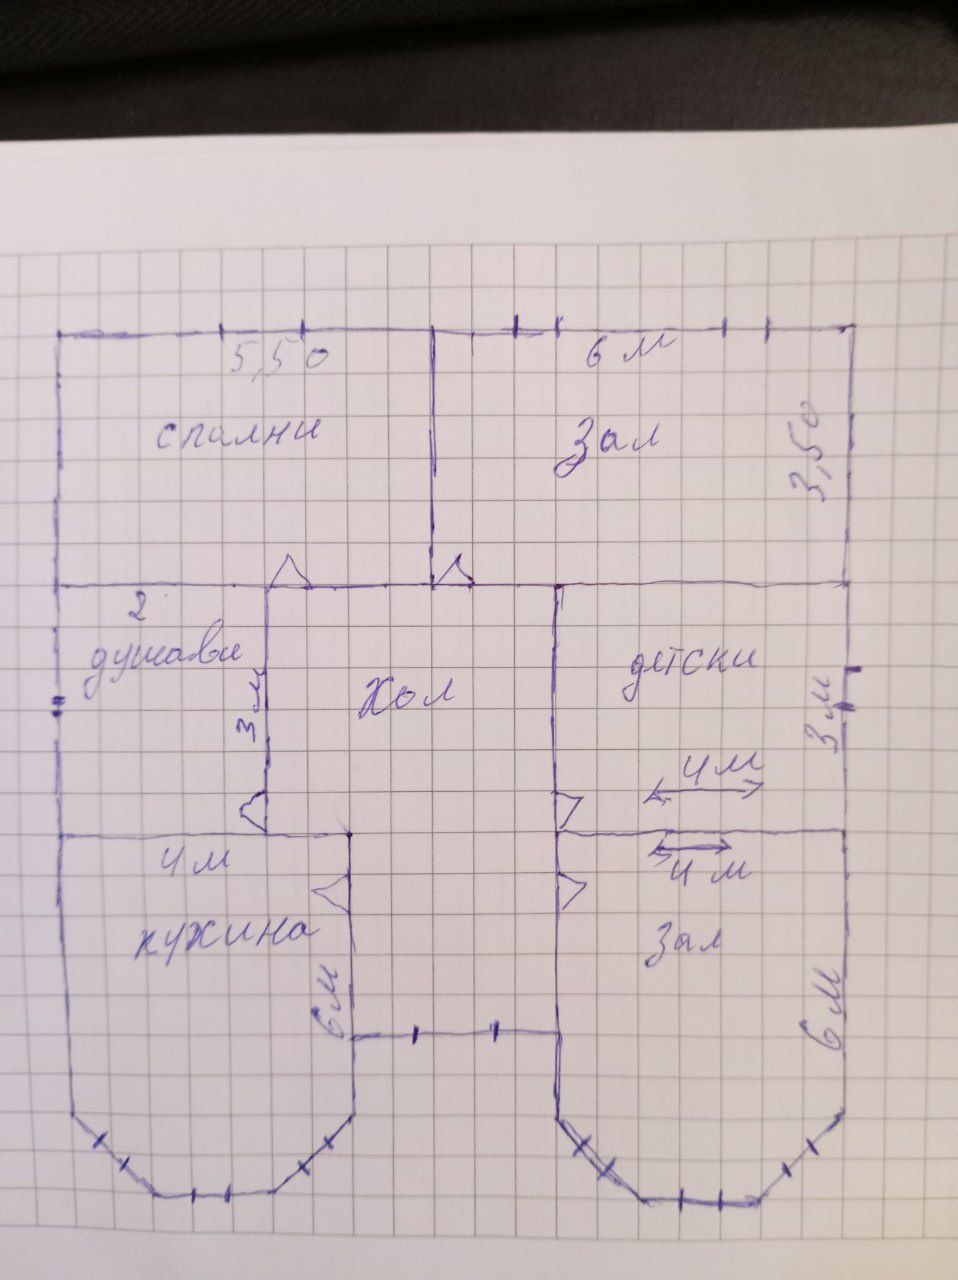 5,50
6 м
спални
Зал
3,50
2
душави
детски
3 м
Хол
3 м
4 м
4 м
4 м
кужина
Зал
6 м
6 м